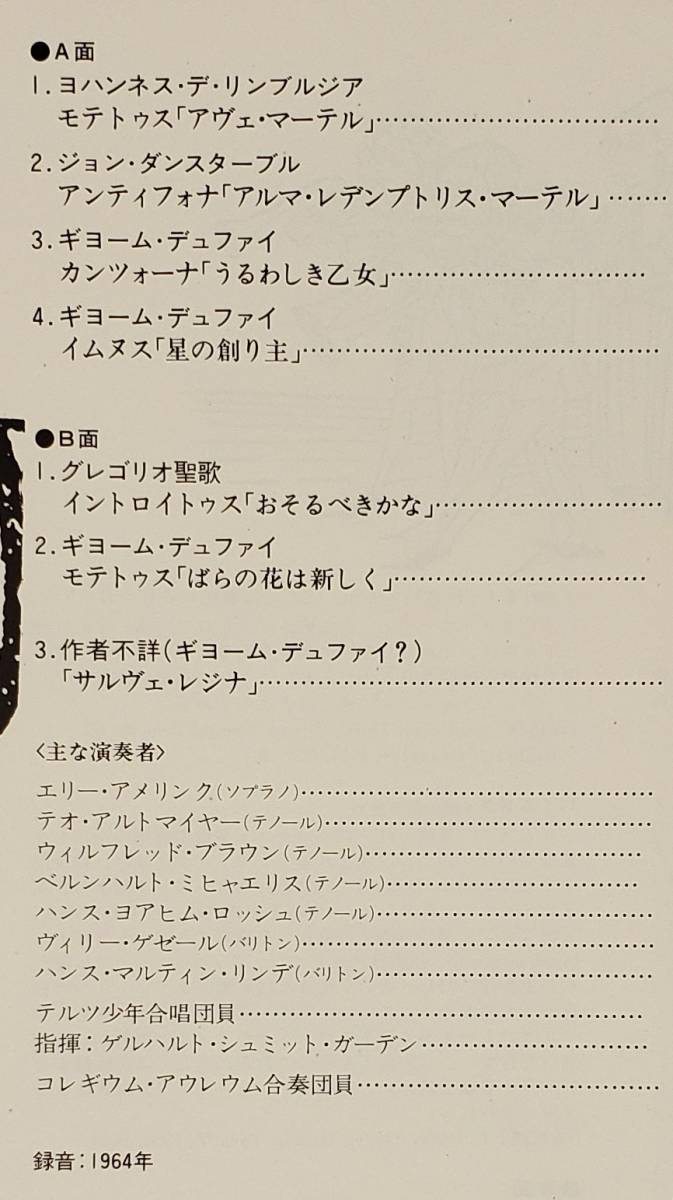 ●A面
1.ヨハンネス・デ・リンブルジア
モテトゥス「アヴェ・マーテル」……………………………
2.ジョン・ダンスターブル
アンティフォナ「アルマ・レデンプトリス・マーテル」………
3.ギヨーム・デュファイ
カンツォーナ「うるわしき乙女」…………………………
4.ギヨーム・デュファイ
イムヌス「星の創り主」……………………………………
●B面
1.グレゴリオ聖歌
イントロイトゥス「おそるべきかな」………………………
2.ギヨーム・デュファイ
モテトゥス「ばらの花は新しく」…………………………
3.作者不詳(ギヨーム・デュファイ?)
「サルヴェ・レジナ」…………………………………………
〈主な演奏者〉
エリー・アメリンク(ソプラノ)……………………………………
テオ・アルトマイヤー(テノール)…………………………………
ウィルフレッド・ブラウン(テノール)……………………………
ベルンハルト・ミヒャエリス(テノール)…………………………
ハンス・ヨアヒム・ロッシュ(テノール)……………………………
ヴィリー・ゲゼール(バリトン)……………………………………
ハンス・マルティン・リンデ(バリトン)……………………………
テルツ少年合唱団員…………………………………………
指揮:ゲルハルト・シュミット・ガーデン………………………
コレギウム・アウレウム合奏団員………………………………
録音:1964年